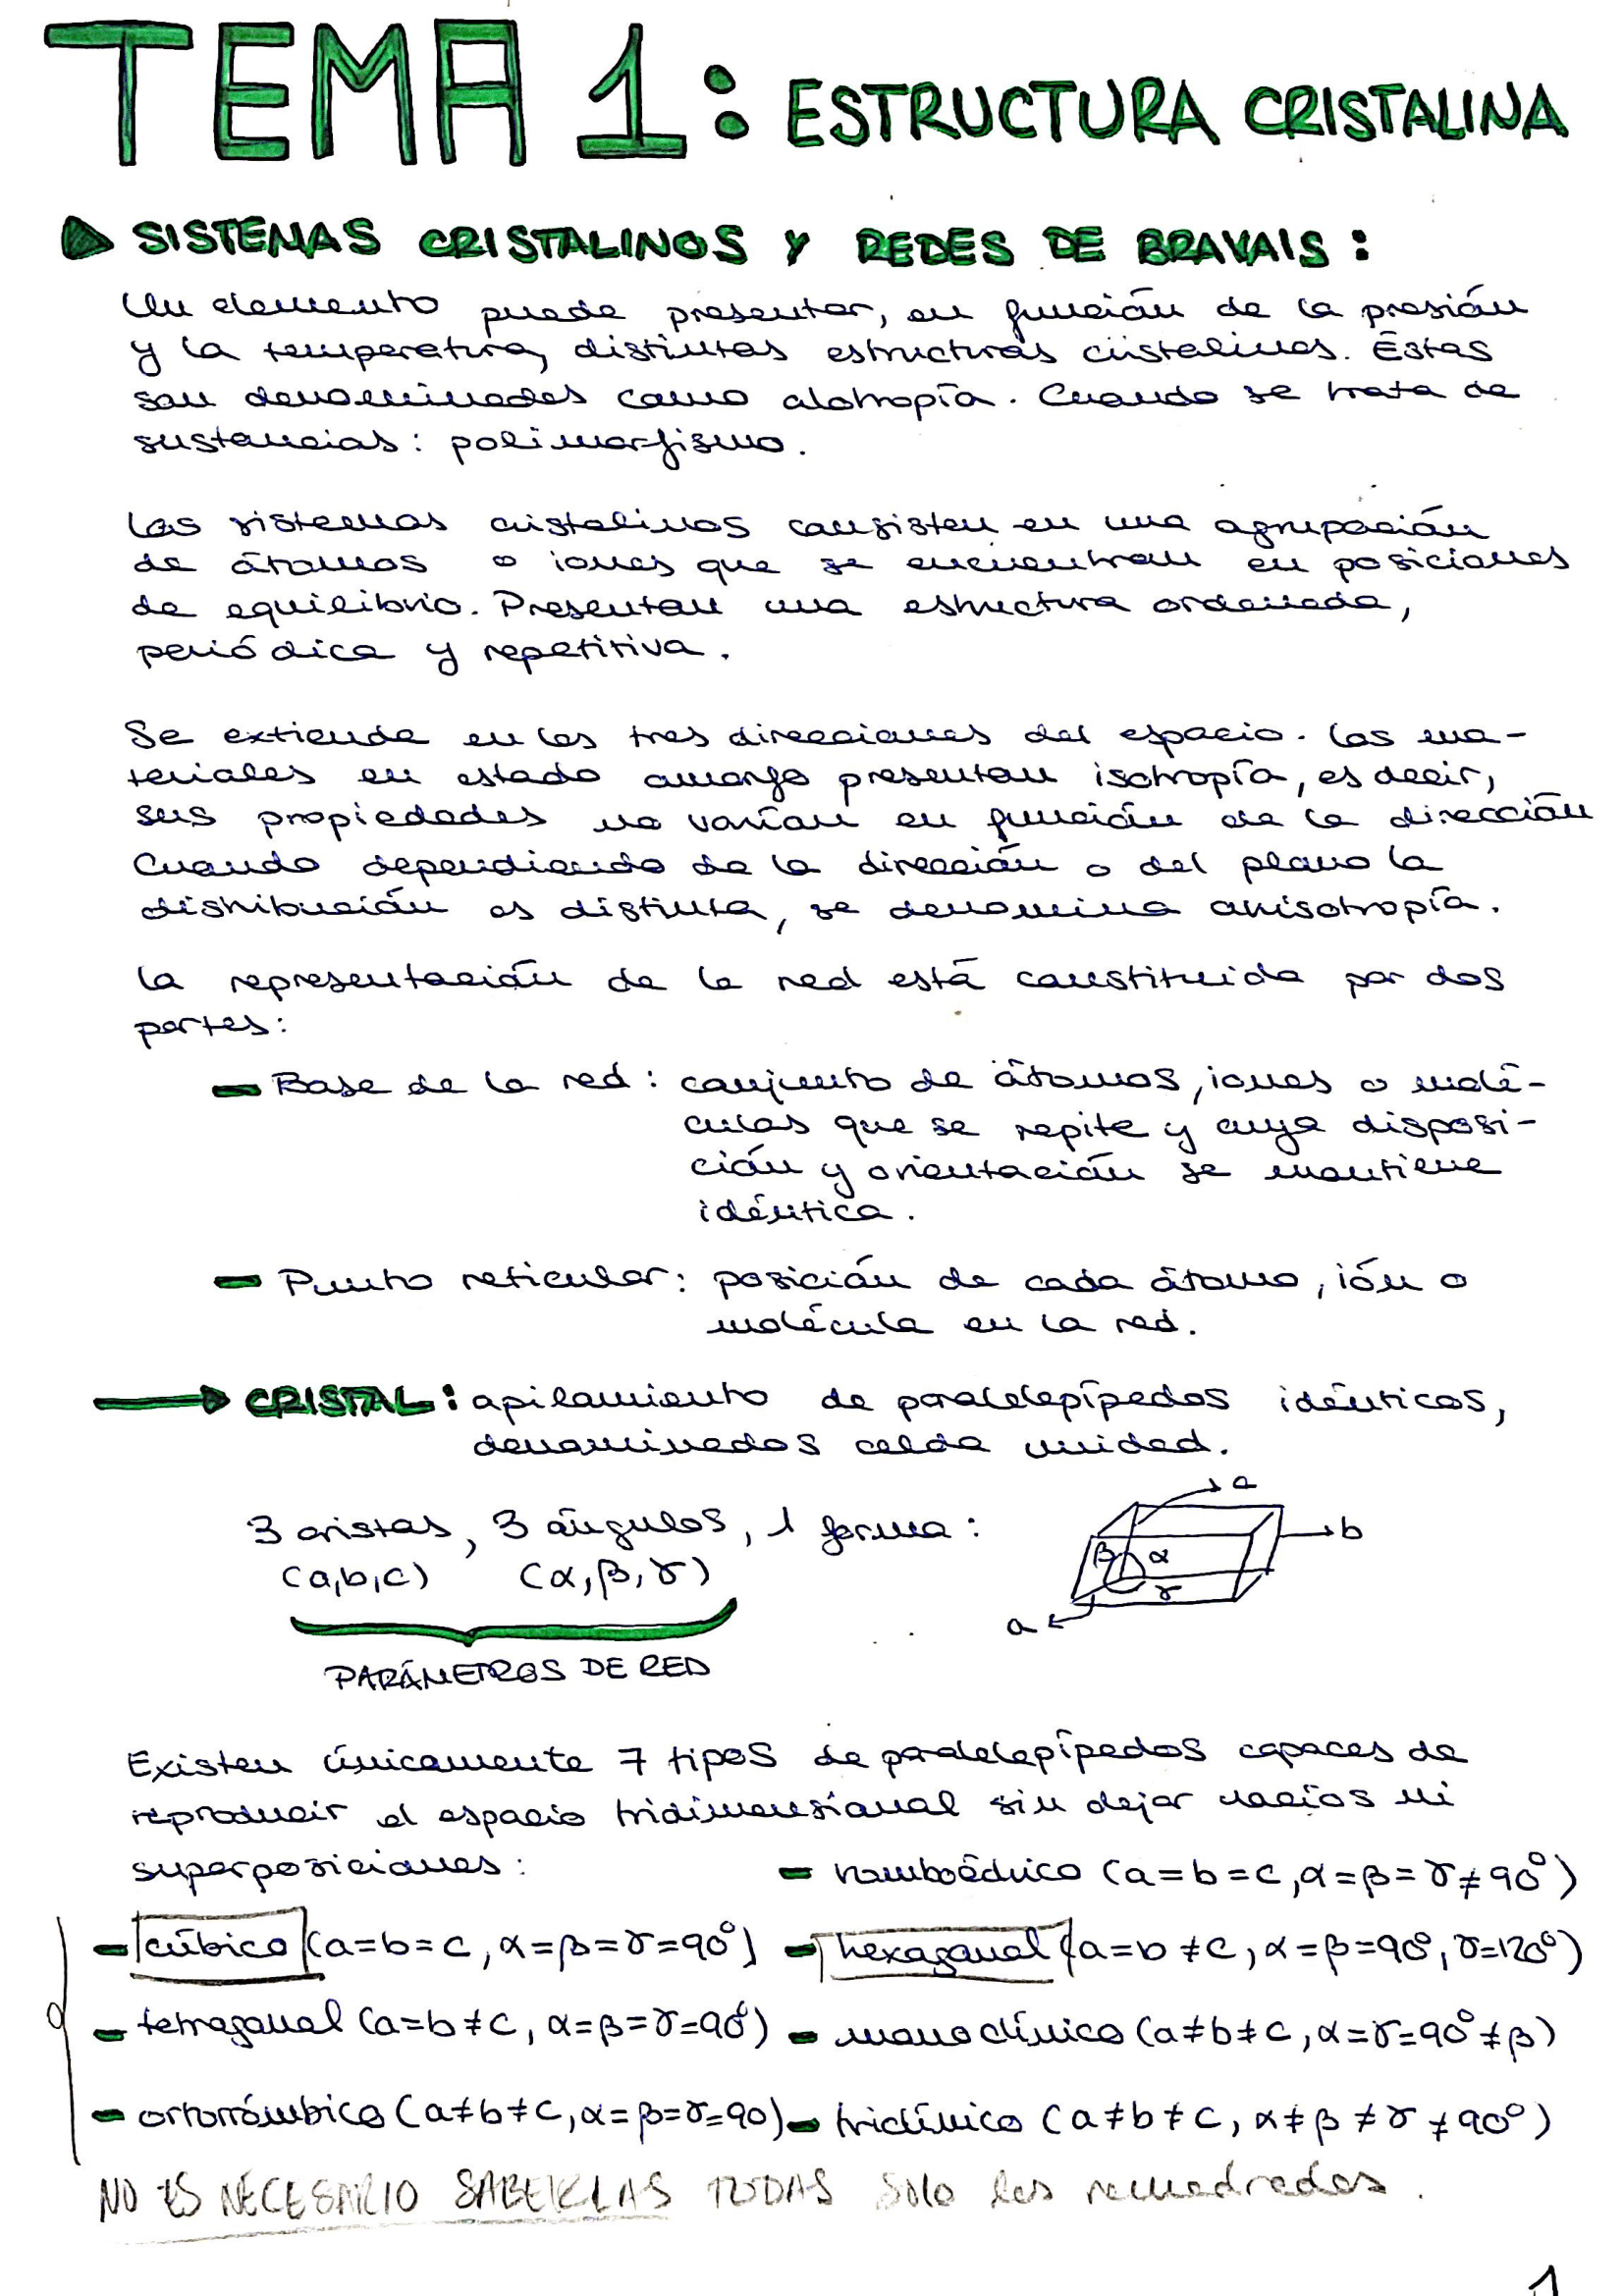 TEMA 1: ESTRUCTURA CRISTALINA
SISTEMAS CRISTALINOS Y REDES DE BRAVAIS:
Un elemento puede presentar, en función de la presión
y la temperatura, distintas estructuras cristalinas. Estas
son denominadas como alotropía. Cuando se trata de
sustancias: polimorfismo.
Los sistemas cristalinos consisten en una agrupación
de átomos o iones que se encuentran en posiciones
de equilibrio. Presentan una estructura ordenada,
periódica y repetitiva.
Se extiende en las tres direcciones del espacio. Los ma-
teriales en estado amorfo presentan isotropía, es decir,
sus propiedades no varían en función de la dirección
Cuando dependiendo de la dirección o del plano la
distribución es distinta, se denomina anisotropía.
La representación de la red está constituida por dos
partes:
- Base de la red: conjunto de átomos, iones o molé-
culas que se repite y cuya disposi-
ción y orientación se mantiene
idéntica.
- Punto reticular: posición de cada átomo, ión o
molécula en la red.
→ CRISTAL: apilamiento de paralelepípedos idénticos,
denominados celda unidad.
3 aristas, 3 ángulos, 1 forma:
(a,b,c) (α,β,γ)
c
b
β α
γ
a
PARÁMETROS DE RED
Existen únicamente 7 tipos de paralelepípedos capaces de
reproducir el espacio tridimensional sin dejar vacíos ni
superposiciones: - romboédrico (a=b=c, α=β=γ≠90°)
- cúbico (a=b=c, α=β=γ=90°) - hexagonal (a=b≠c, α=β=90°, γ=120°)
- tetragonal (a=b≠c, α=β=γ=90°) - monoclínico (a≠b≠c, α=γ=90°≠β)
- ortorrómbico (a≠b≠c, α=β=γ=90) - triclínico (a≠b≠c, α≠β≠γ≠90°)
NO ES NECESARIO SABERLAS TODAS solo las recuadradas.
1